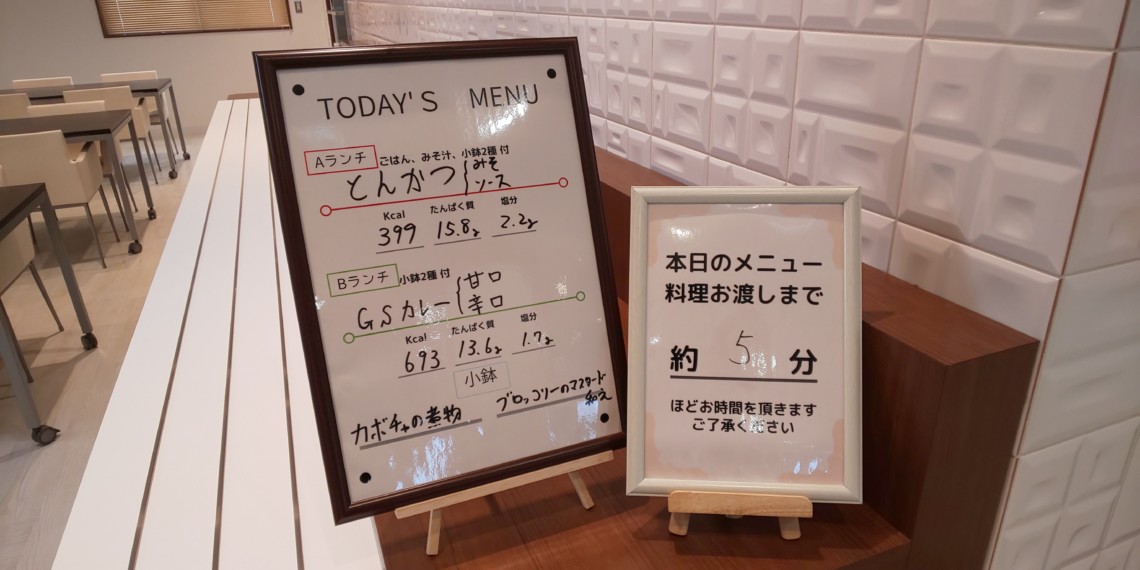 TODAY'S MENU
Aランチ ごはん、みそ汁、小鉢2種 付
とんかつ みそ
ソース
Kcal たんぱく質 塩分
399 15.8g 2.2g
Bランチ 小鉢2種 付
GSカレー 甘口
辛口
Kcal たんぱく質 塩分
693 13.6g 1.7g
小鉢
カボチャの煮物
ブロッコリーのマスタード
和え
本日のメニュー
料理お渡しまで
約 5 分
ほどお時間を頂きます
ご了承ください